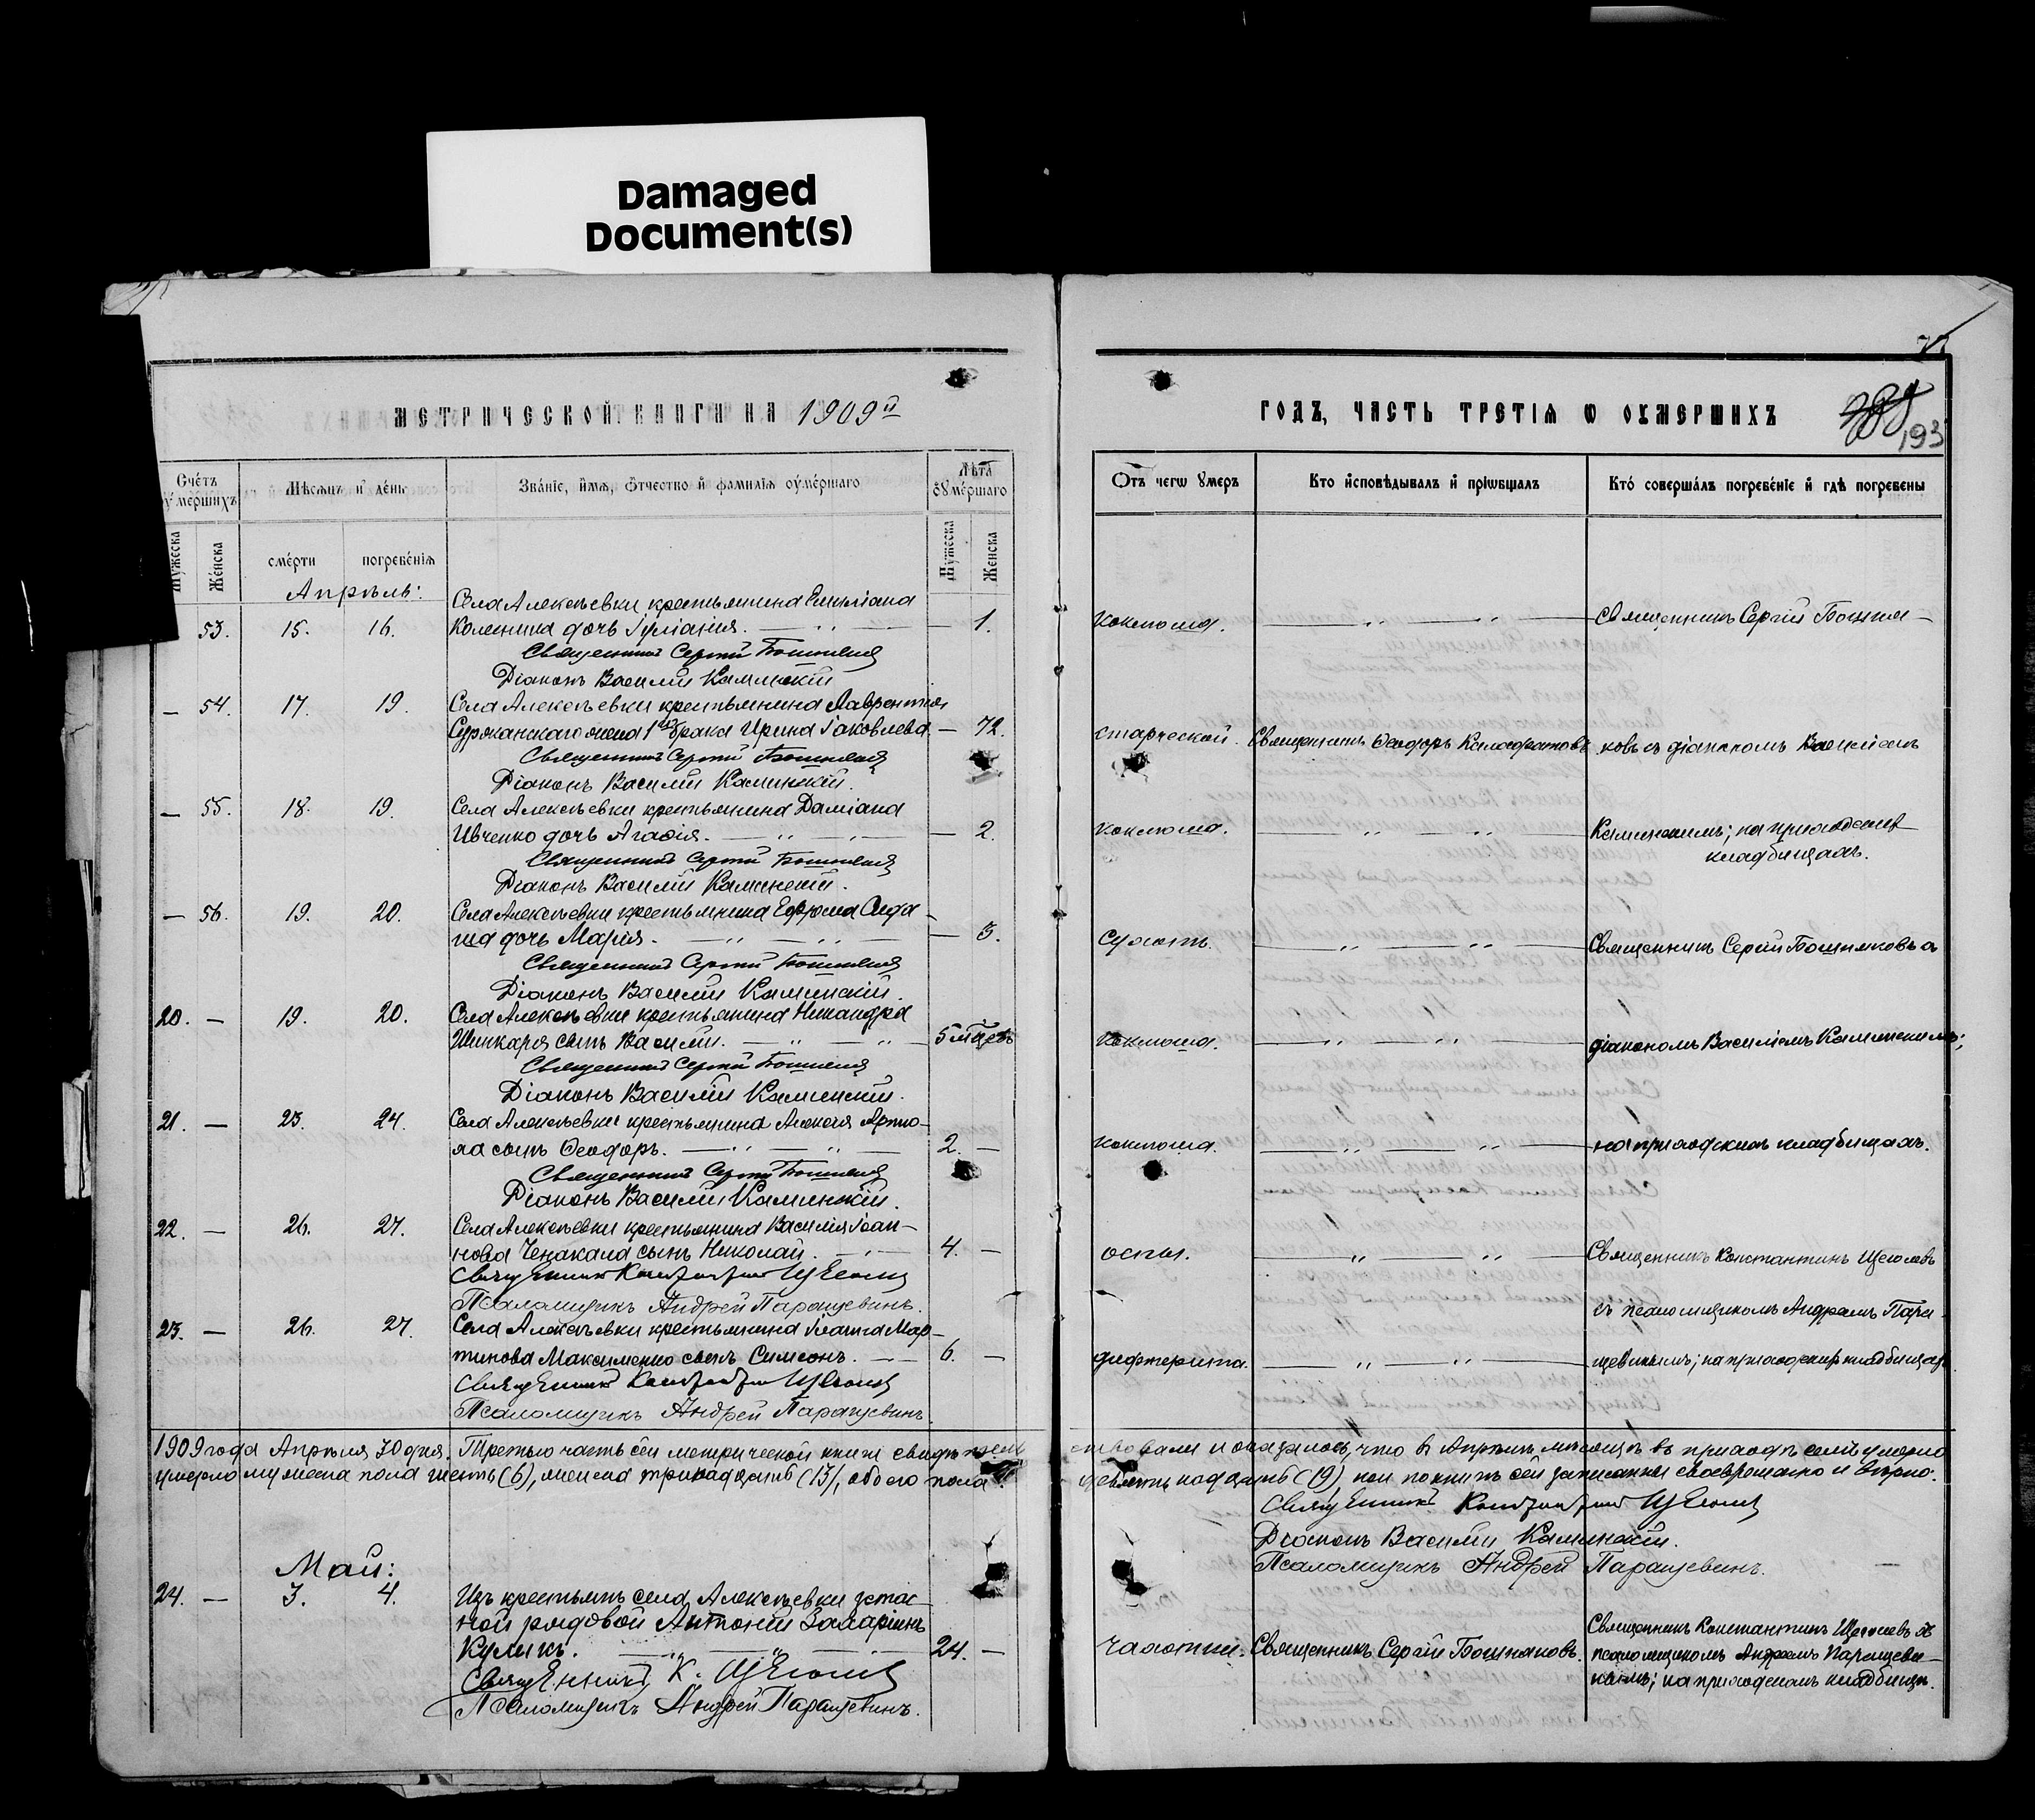 Damaged
Document(s)
МЕТРИЧЕСКОЙ КНИГИ НА 1909й
Счéтъ
ᲂумершихъ
Мѣсяцъ и день
Званіе, имя, Отчество и фамилія оумершаго
Лѣта
оумершаго
Мужеска
Женска
смерти
погребенія
Мужеска
Женска
Апрѣль:
53. 15. 16. Села Алексѣевки крестьянина Емиліана
дочь Іуліанія. — 1.
Священникъ Сергій
Діаконъ Василій Каминскій
— 54. 17. 19. Села Алексѣевки крестьянина Лаврентія
жена 1го брака Ирина Іаковлева — 72.
Священникъ Сергій
Діаконъ Василій Каминскій.
— 55. 18. 19. Села Алексѣевки крестьянина Даміана
Ивченко дочь Агафія. — 2.
Священникъ Сергій
Діаконъ Василій Каминскій.
— 56. 19. 20. Села Алексѣевки крестьянина
дочь Марія. —
Священникъ Сергій
Діаконъ Василій Каминскій.
20. — 19. 20. Села Алексѣевки крестьянина Никандра
Шинкаря сынъ Василій. — 5 мѣцевъ
Священникъ Сергій
Діаконъ Василій Каминскій.
21. — 23. 24. Села Алексѣевки крестьянина Алексѣя
сынъ Ѳеодоръ. — 2. —
Священникъ Сергій
Діаконъ Василій Каминскій.
22. — 26. 27. Села Алексѣевки крестьянина Василія Іоан-
нова сынъ Николай. — 4. —
Священникъ Константинъ Щеголевъ
Псаломщикъ Андрей Паращевинъ.
23. — 26. 27. Села Алексѣевки крестьянина Іоанна Мар-
тинова Максименко сынъ Симеонъ. — 6. —
Священникъ Константинъ Щеголевъ
Псаломщикъ Андрей Паращевинъ.
1909 года Апрѣля 30 дня. Третью часть сей метрической книги свидѣтель
умерло мужеска пола шесть (6), женска тринадцать (13), обоего пола
Май:
24. — 3. 4. Изъ крестьянъ села Алексѣевки запас-
ной рядовой Антоній Захаріинъ
Куликъ. — 24. —
Священникъ К. Щеголевъ
Псаломщикъ Андрей Паращевинъ.
193
ГОДЪ, ЧАСТЬ ТРЕТІЯ Ѡ ОУМЕРШИХЪ
Отъ чегѡ умеръ
Кто исповѣдывалъ и пріѡбщалъ
Кто совершалъ погребеніе и гдѣ погребены
коклюша. Священникъ Сергій Бошня-
старческой. Священникъ Ѳеодоръ ковъ съ діакономъ Василіемъ
коклюша. Каминскимъ; на приходскихъ
кладбищахъ.
Священникъ Сергій Бошняковъ съ
коклюша. діакономъ Василіемъ Каминскимъ;
коклюша. на приходскихъ кладбищахъ.
оспы. Священникъ Константинъ Щеголевъ
съ псаломщикомъ Андреемъ Пара-
дифтерита. щевинымъ; на приходскихъ кладбищахъ.
ствовали и оказалось, что въ Апрѣлѣ мѣсяцѣ въ приходѣ семъ умерло
девятнадцать (19), кои по книгѣ сей записаны своевременно и вѣрно.
Священникъ Константинъ Щеголевъ
Діаконъ Василій Каминскій.
Псаломщикъ Андрей Паращевинъ.
чахотки. Священникъ Сергій Бошняковъ. Священникъ Константинъ Щеголевъ съ
псаломщикомъ Андреемъ Паращеви-
нымъ; на приходскомъ кладбищѣ.